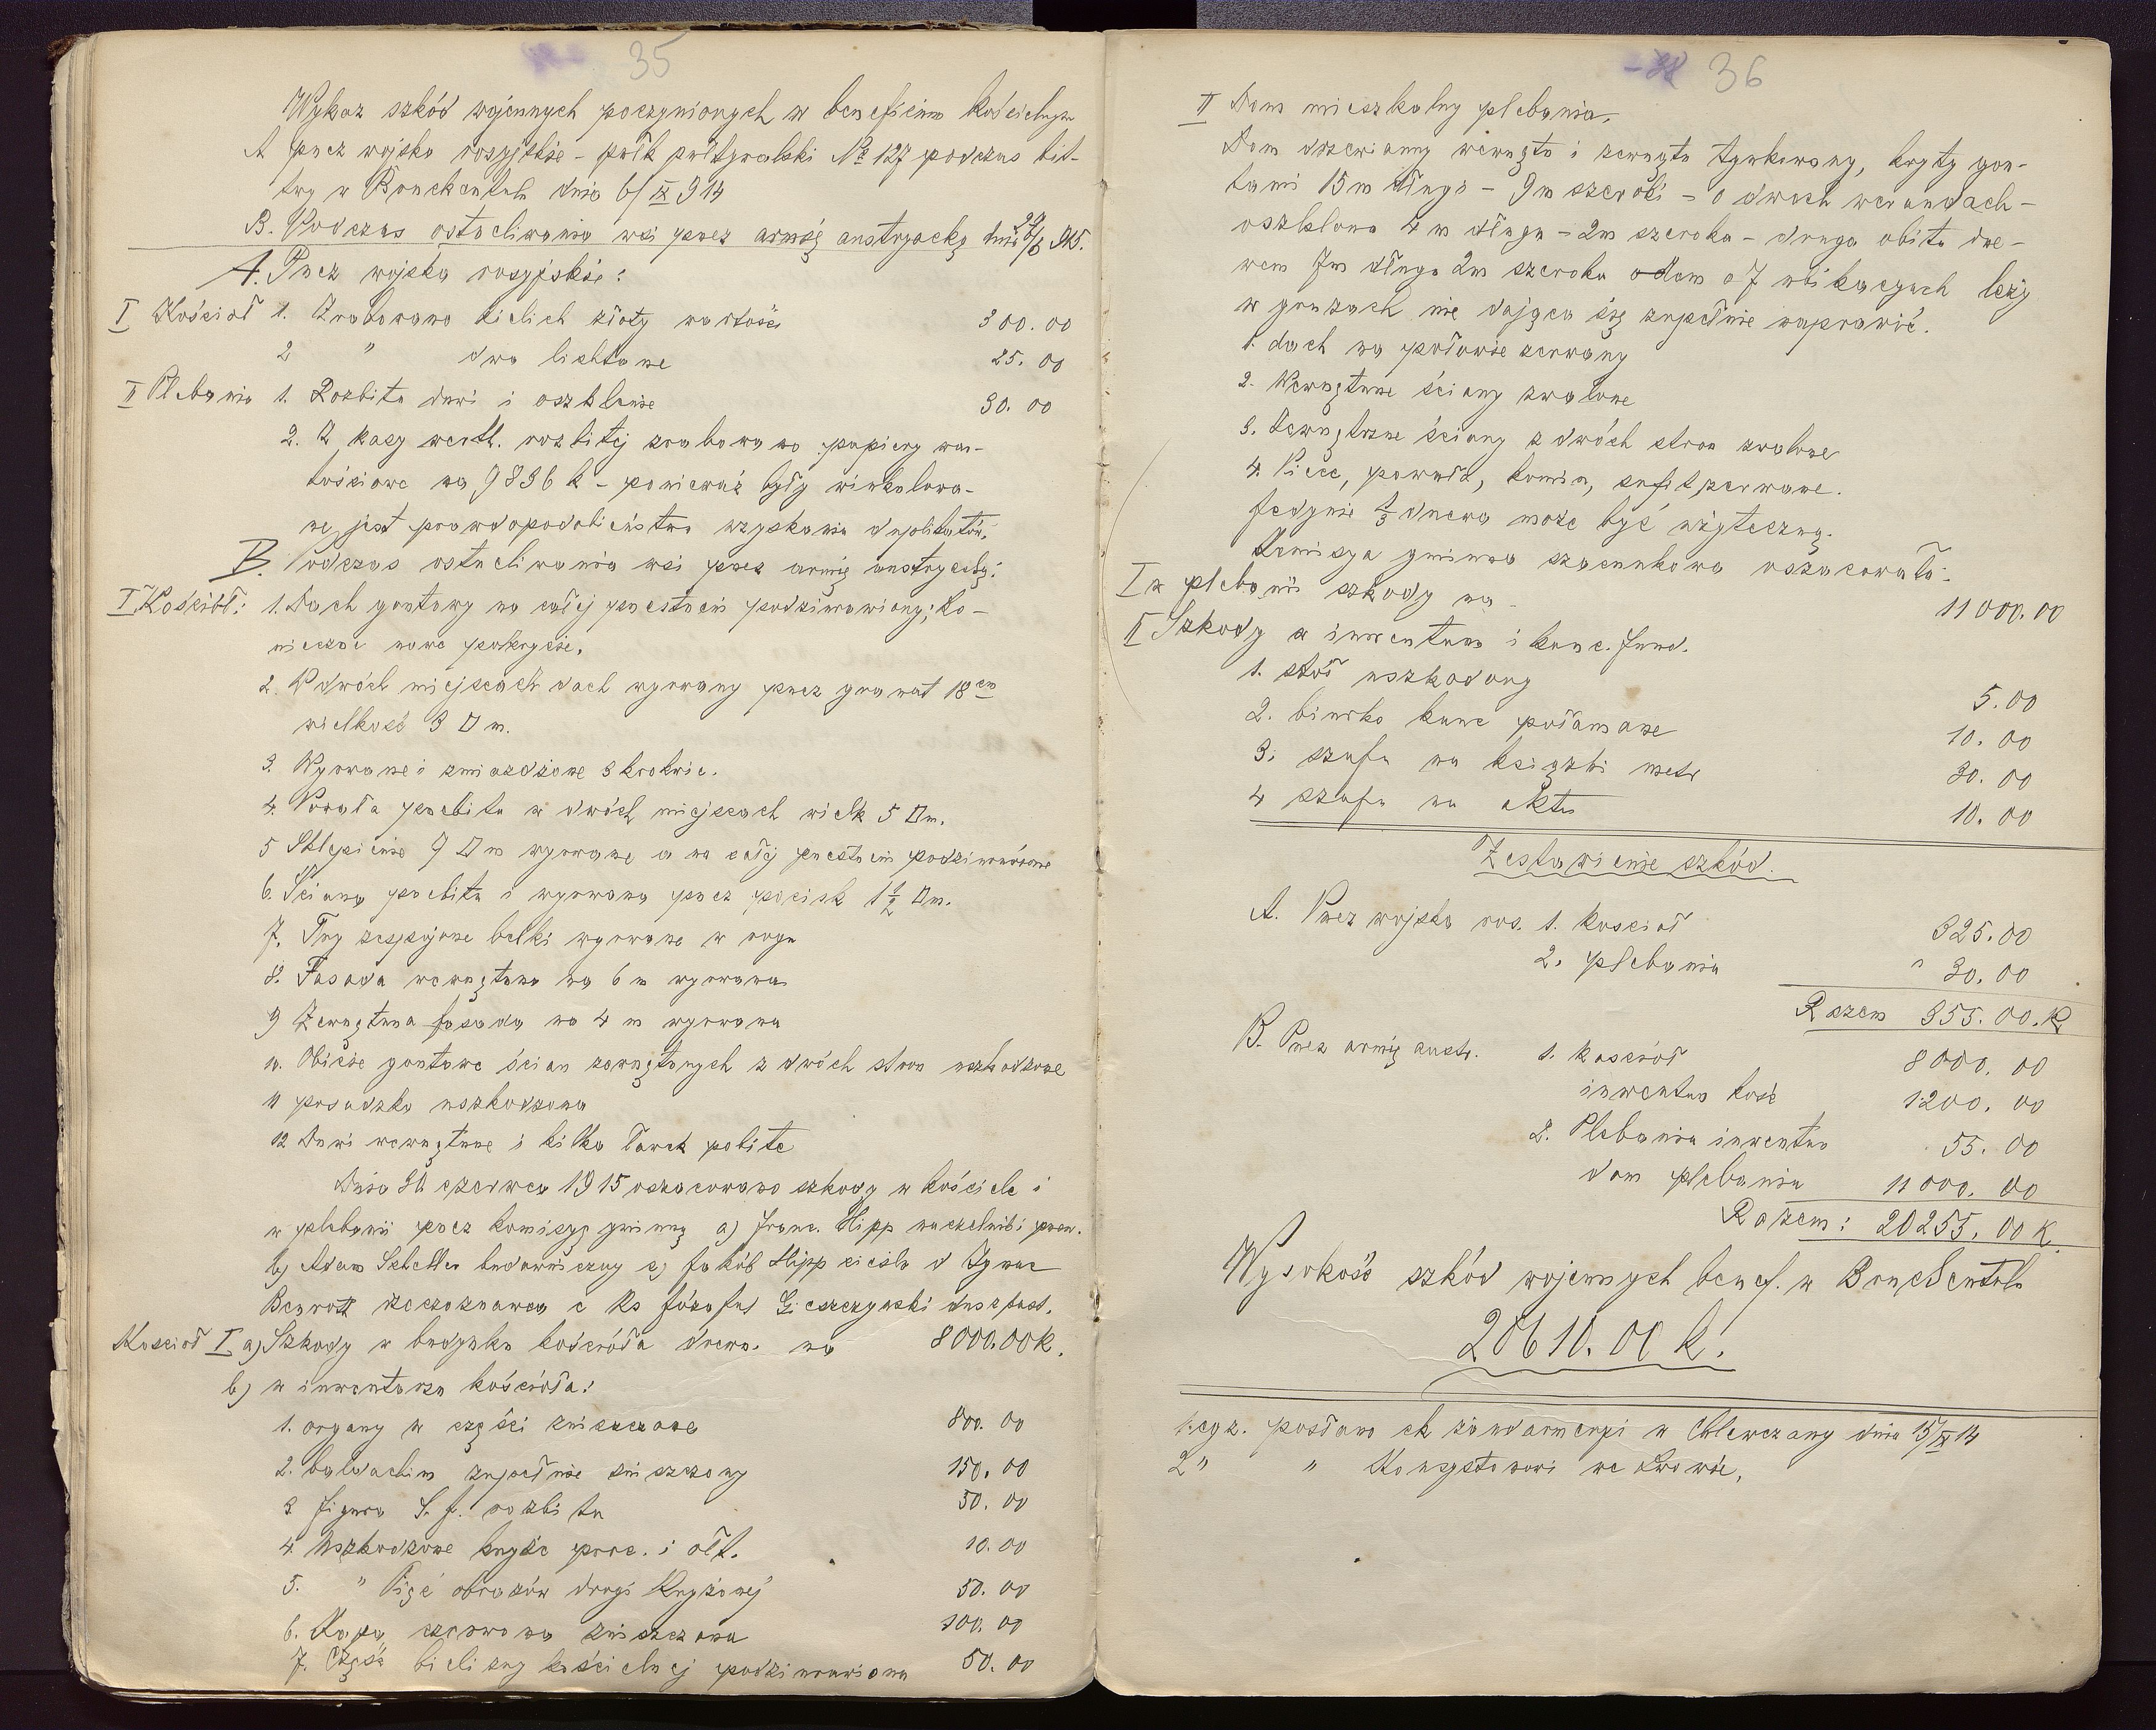 35
Wykaz szkód wojennych poczynionych w beneficium kościelnym
A przez wojska rosyjskie – pułk putywelski № 127 podczas bit-
twy w Bruckentalu dnia 6/IX 914
B. Podczas ostrzeliwania wsi przez armię austryacką dnia /6 915.
A. Przez wojska rosyjskie:
I Kościoł 1. Zrabowano kielich złoty wartości 300.00
2 " dwa lichtarze 25.00
II Plebania 1. Rozbite drzwi i oszklenie 30.00
2. Z kasy werth. rozbitej zrabowano papiery war-
tościowe na 9836 k – ponieważ były winkulowa-
ne, jest prawdopodobieństwo uzyskania duplikatów.
B. Podczas ostrzeliwania wsi przez armię austryacką:
I Kościół: 1. Dach gontowy na całej przestrzeni podziurawiony; ko-
nieczne nowe pokrycie.
2. W dwóch miejscach dach wyrwany przez granat 18 cm
wielkość 3 □ m.
3. Wyrwane i zmiażdżone 3 krokwie.
4. Powała przebita w dwóch miejscach wielk 5 □m.
5 Sklepienie 9 □ m wyrwane a na całej przestrzeni podziurawione
6. Ściana przebita i wyrwana przez pocisk 1 1/2 □m.
7. Trzy zespojone belki wyrwane w rogu
8. Fasada wewnętrzna na 6 m wyrwana
9 Zewnętrzna fasada na 4 m wyrwana
10. Obicie gontowe ścian zewnętrznych z dwóch stron uszkodzone
11 posadzka uszkodzona
12 Drzwi wewnętrzne i kilka ławek pobite
Dnia 30 czerwca 1915 oszacowano szkody w kościele i
w plebanii przez komisyę gminną a) Franc. Hipp naczelnik i przew.
b) Adam budowniczy c) Jakób Hipp cieśla d Ignac
rzeczoznawca e ks Józefus duszpast.
Kościoł I a) Szkody w budynku kościoła drewn. na 8000.00 K.
b) w inwentarzu kościoła:
1. organy w części zniszczone 800.00
2. baldachim zupełnie zniszczony 150.00
3 figura S. J. rozbita 50.00
4. Uszkodzone krzyże proc. i ołt. 10.00
5. " Pięć obrazów drogi Krzyżowej 50.00
6. Kapa czerwona zniszczona 100.00
7. Część bielizny kościelnej podziurawiona 50.00
36
II Dom mieszkalny plebania.
Dom drzewianny wewnątrz i zewnątrz tynkowany, kryty gon-
tami 15 m długi – 9 m szeroki – o dwoch werandach –
oszklona 4 m długa – 2 m szeroka – druga obita drze-
wem 7m długa 2m szeroka o dom o 7 ubikacyach leży
w gruzach nie dająca się zupełnie naprawić.
1. dach na połowie zerwany
2. Wewnętrzne ściany zwalone
3. Zewnętrzne ściany z dwóch stron zwalone
4. Piece, powała, komin, sufit zerwane.
Jedynie 1/3 drzewa może być użyteczną.
Komisya gminna szacunkowa oszacowała:
I w plebanii szkody na 11000.00
II Szkody w inwentarzu i kanc. fund.
1. stół uszkodzony 5.00
2. biurko kanc połamane 10.00
3. szafa na księżki metr 30.00
4 szafa na akta 10.00
Zestawienie szkód.
A. Przez wojska ros. 1. kościoł 325.00
2. plebania " 30.00
Razem 355.00. K
B. Przez armię austr. 1. kościoł 8000.00
inwentarz kość 1200.00
2. Plebania inwentarz 55.00
dom plebania 11000.00
Razem: 20255.00 K.
Wysokość szkód wojennych benef. w Bruckentalu
20610.00 K.
1. egz. posłano ck żandarmeryi w Chlewczany dnia 15/IX 14
2 " " Konsystorzowi we Lwowie.